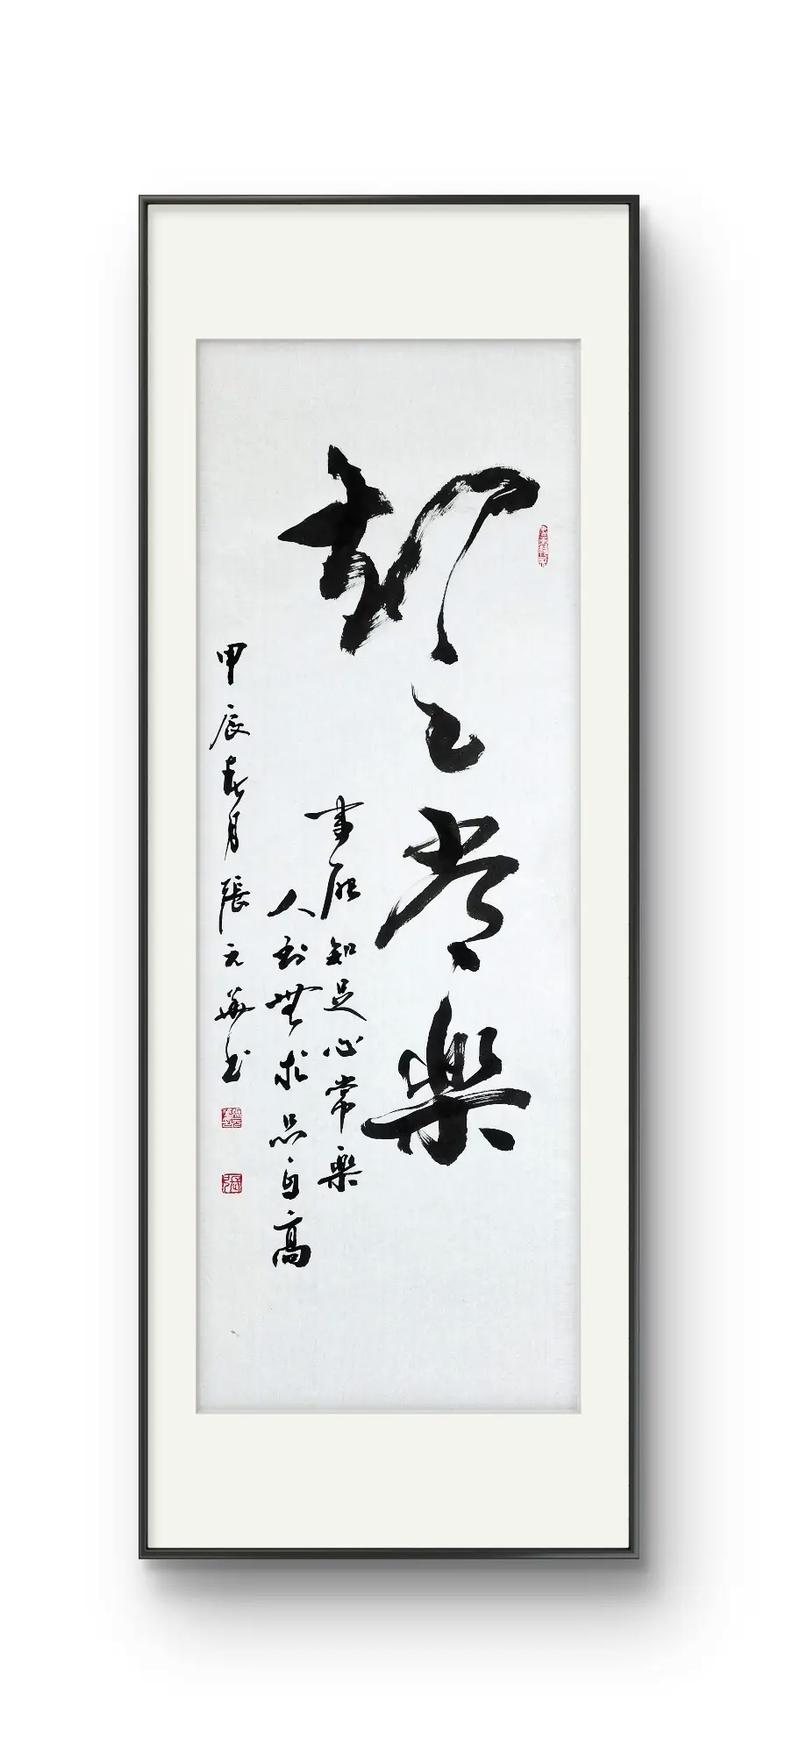 知足常樂
事能知足心常樂
人到無求品自高
甲辰春月張元華书